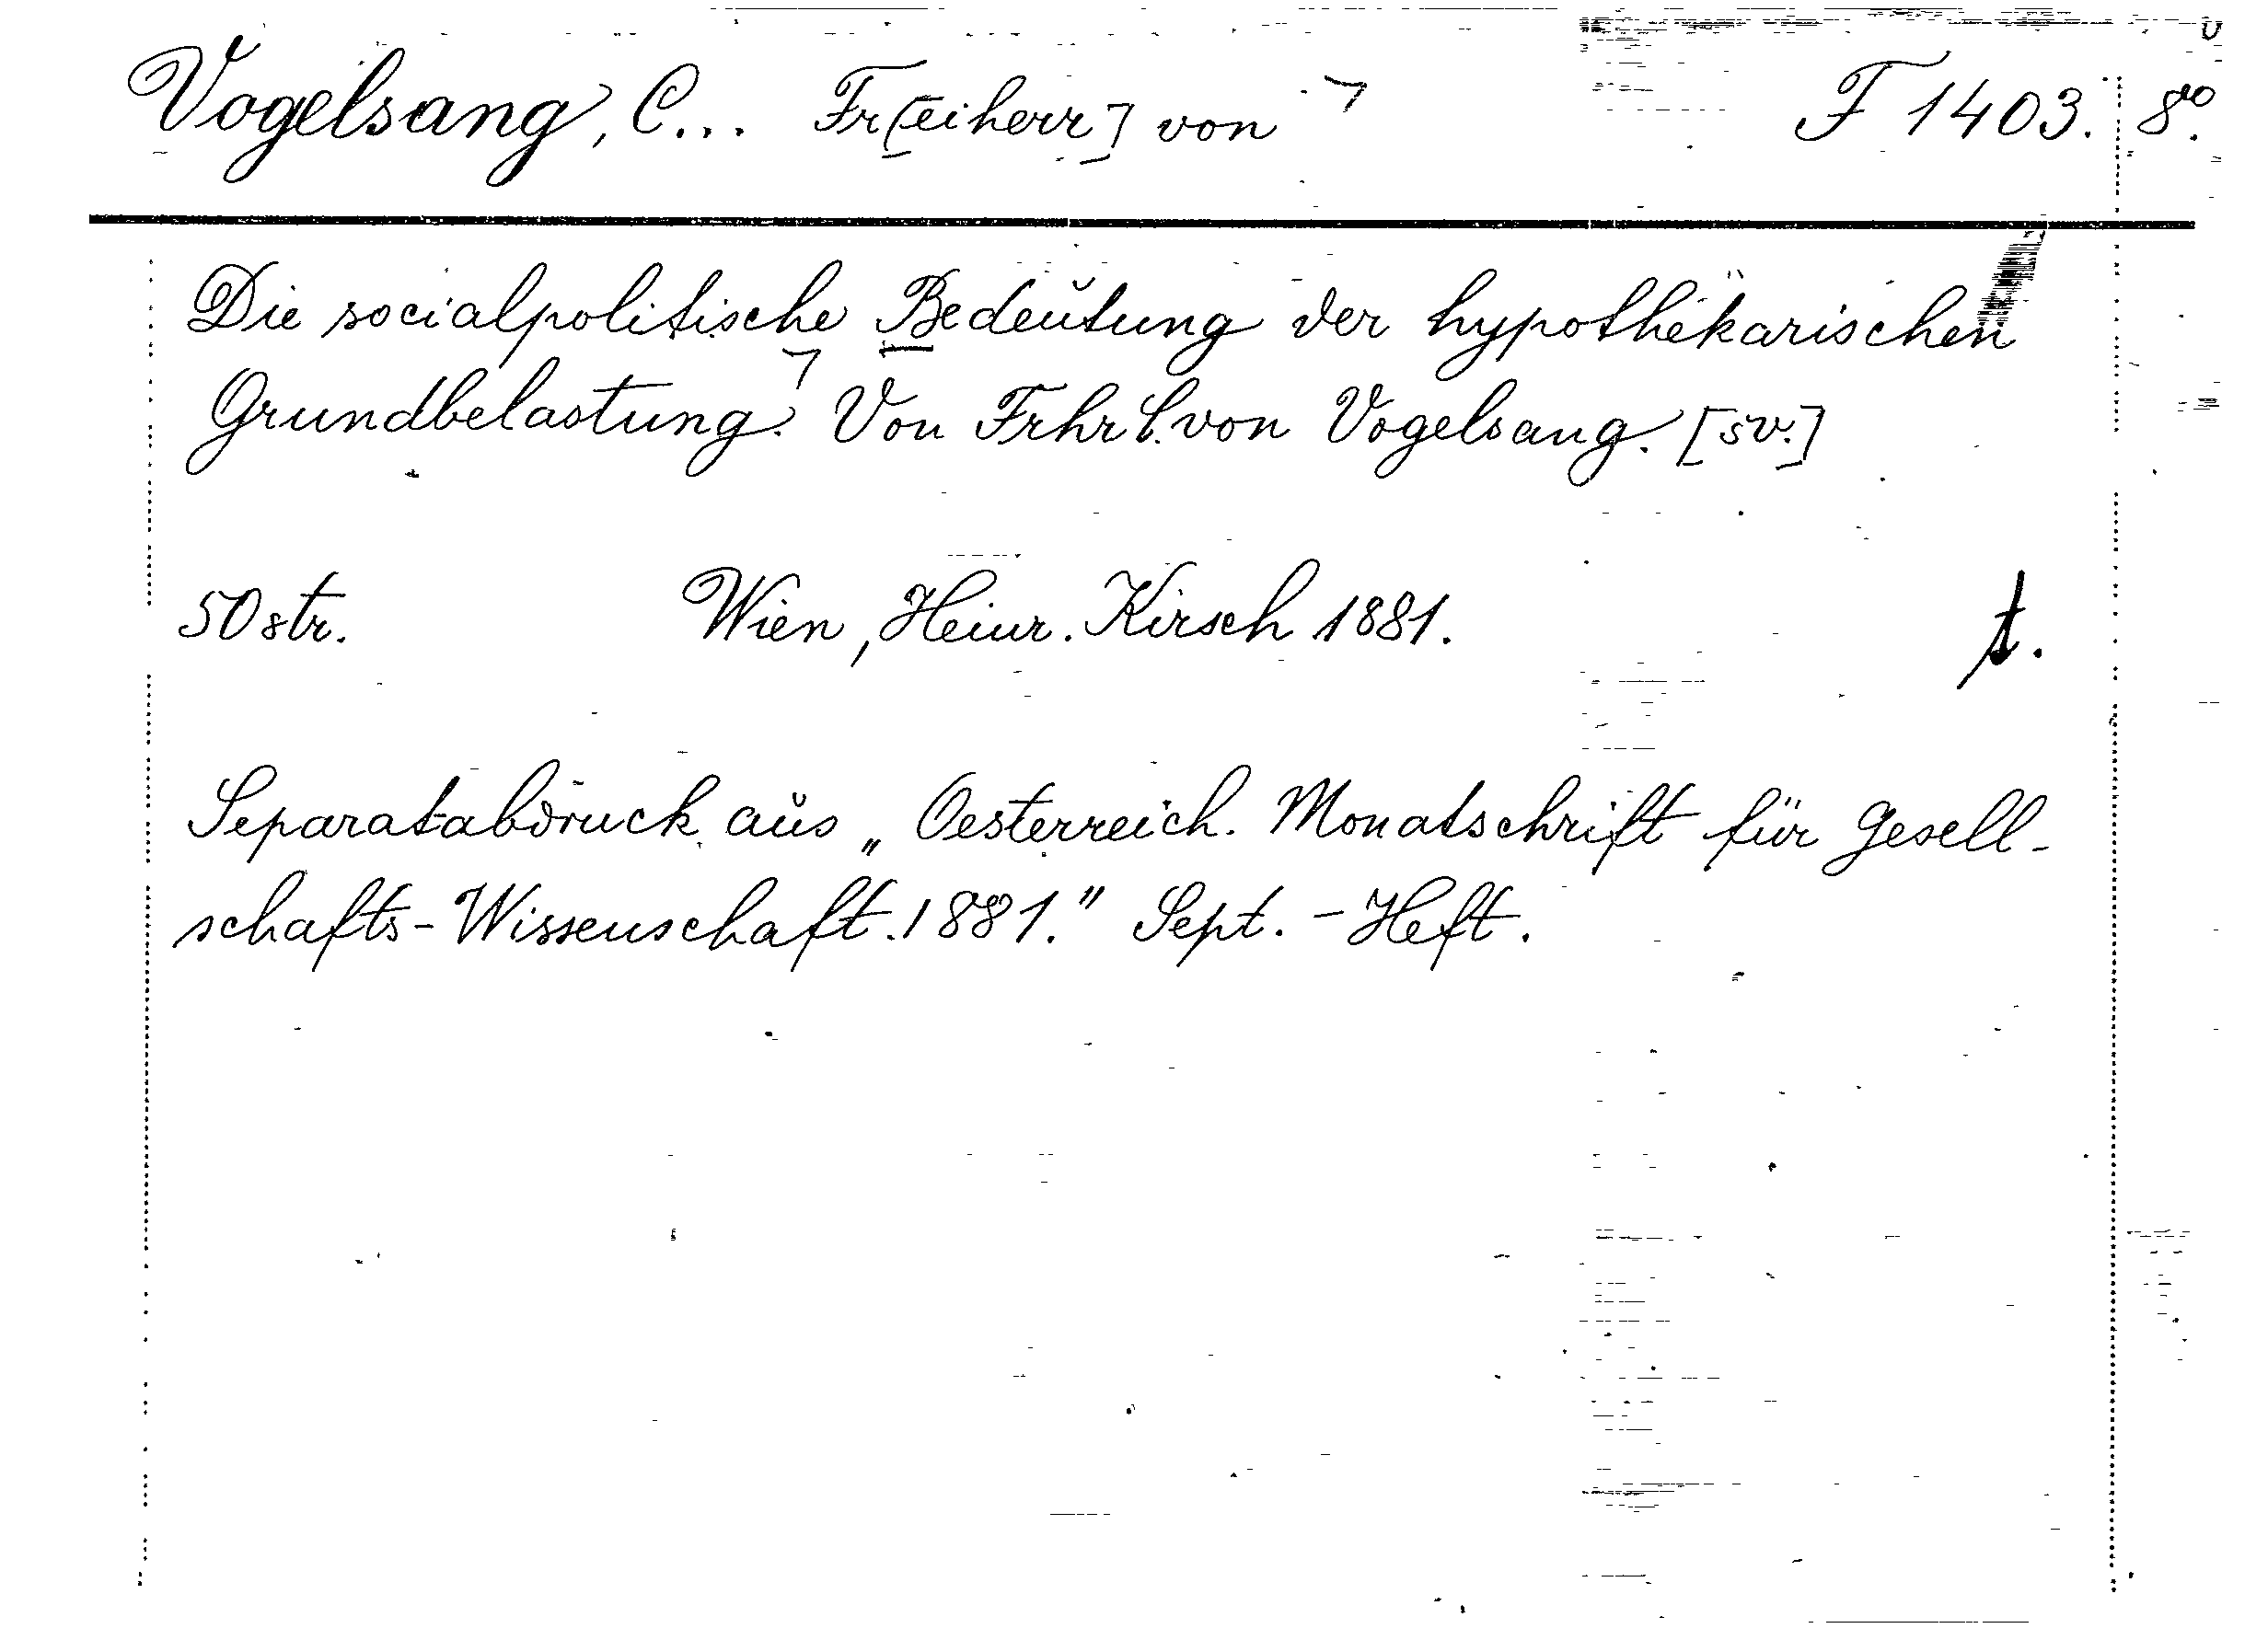 Vogelsang, C... Fr[eiherr] von F 1403. 8º.
Die socialpolitische Bedeutung der hypothekarischen
Grundbelastung. Von Frhr C. von Vogelsang. [sv.]
50 str. Wien, Heinr. Kirsch 1881. t.
Separatabdruck aus „Oesterreich. Monatschrift für Gesell-
schafts-Wissenschaft. 1881." Sept. - Heft.